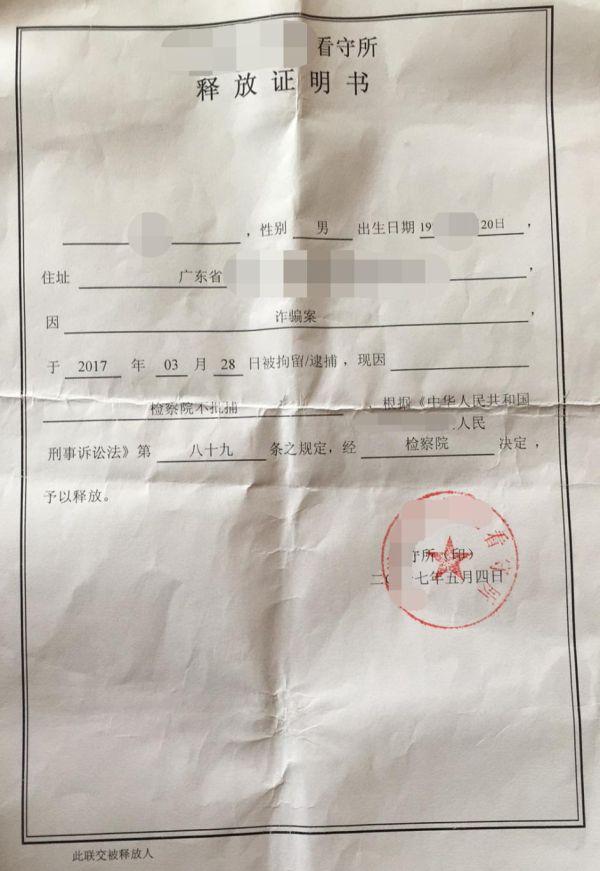 看守所
释放证明书
，性别 男 出生日期 19 20日，
住址 广东省 ，
因 诈骗案
于 2017 年 03 月 28 日被拘留/逮捕，现因
检察院不批捕 ，根据《中华人民共和国
人民
刑事诉讼法》第 八十九 条之规定，经 检察院 决定，
予以释放。
看守所
守所（印）
二〇 七年五月四日
此联交被释放人